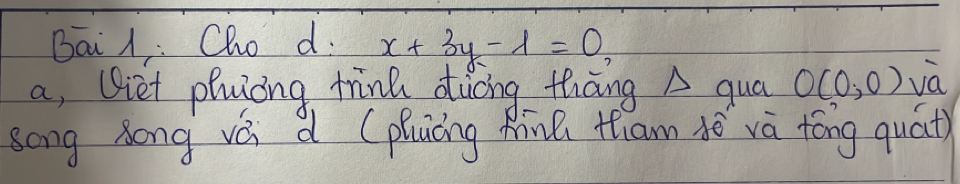 Bài 1: Cho d: x + 3y - 1 = 0
a, Viết phương trình đường thẳng Δ qua O(0;0) và
song song với d (phương trình tham số và tổng quát)